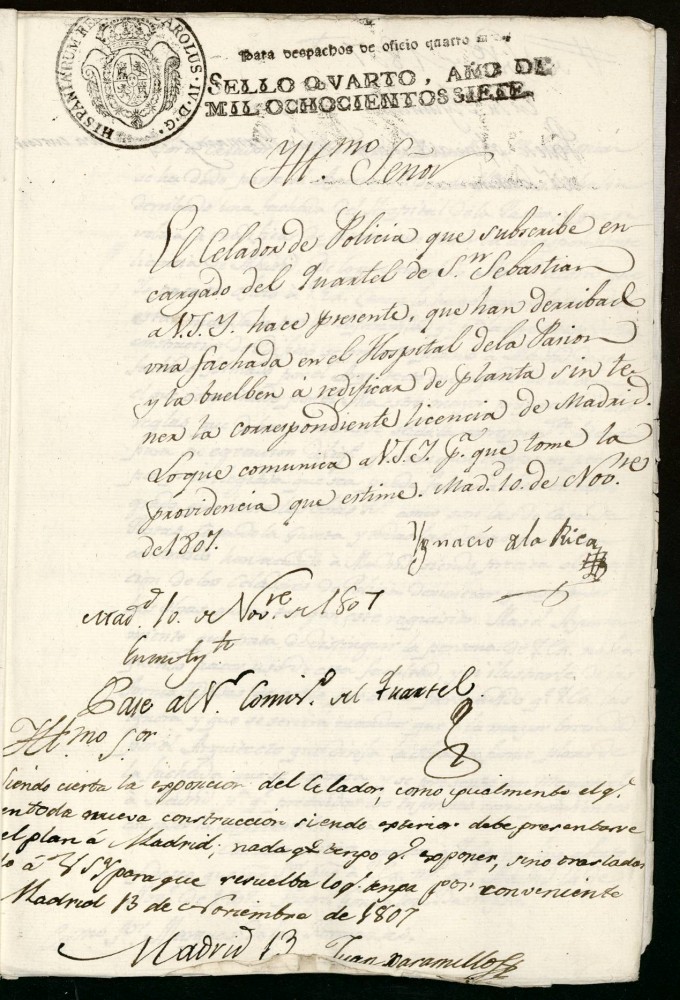 HISPANIARUM REX CAROLUS·IV·D·G·
Para despachos de oficio quatro mrs.
SELLO QVARTO, AÑO DE
MIL OCHOCIENTOS SIETE.
Yll.mo Señor
El Celador de Policia que subscribe en
cargado del Quartel de S.n Sebastian
a V.S.Y. hace presente, que han derribado
una fachada en el Hospital dela Pasion
y la buelben à redificar de planta sin te-
ner la correspondiente licencia de Madrid.
Lo que comunica a V.S.Y. p.a que tome la
providencia que estime. Mad.d 10. de Nov.re
de 1807.
Ygnacio de la Rica
Mad.d 10. de Nov.re de 1807
En Aiunt.to
Pase al S.r Comis.o del Quartel.
Yll.mo S.or
Siendo cierta la exposicion del Celador, como igualmente el q.e
en toda nueva construccion siendo exterior debe presentarse
el plan á Madrid; nada tengo q.e exponer, sino traslada
lo á V.S.Y. para que resuelba lo q.e tenga por conveniente
Madrid 13 de Noviembre de 1807
Juan Jaramillo
Madrid 13